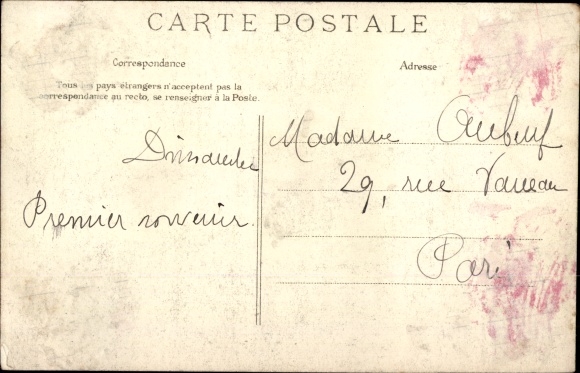 CARTE POSTALE
Correspondance
Adresse
Tous les pays étrangers n'acceptent pas la
correspondance au recto, se renseigner à la Poste.
Dimanche
Premier souvenir.
Madame
29, rue Vaneau
Paris